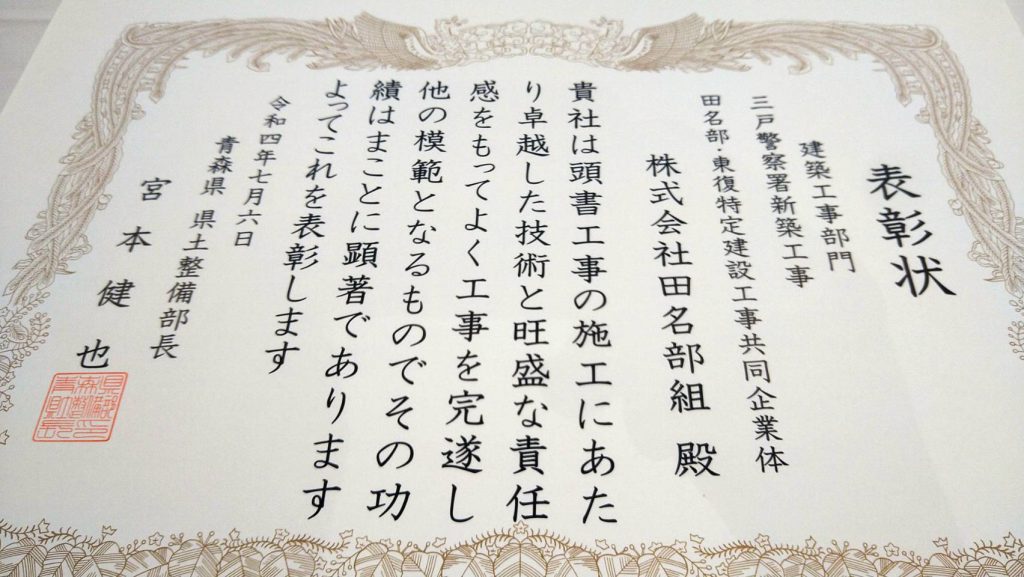 表彰状
建築工事部門
三戸警察署新築工事
田名部・東復特定建設工事共同企業体
株式会社田名部組 殿
貴社は頭書工事の施工にあた
り卓越した技術と旺盛な責任
感をもってよく工事を完遂し
他の模範となるものでその功
績はまことに顕著であります
よってこれを表彰します
令和四年七月六日
青森県 県土整備部長
宮本健也